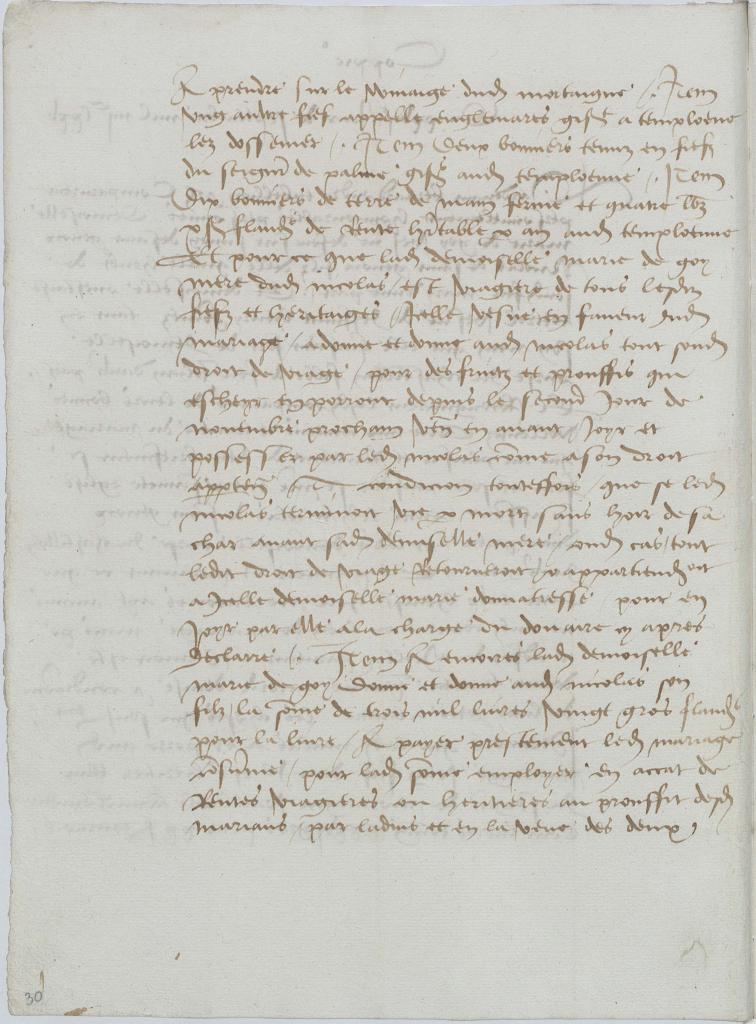 A prendre sur le winaige dud mortaigne /. Item
ung autre fief appelle englemares gist a temploeuve
lez dossemer /. Item deux bonniers tenuz en fief
du seigneur de palme gist aud temploeuve /. Item
Dix bonniers de terre de main ferme et quatre
flandr de Rente heritable aud temploeuve
Et pour ce que lad demoiselle marie de goy
mere dud nicolas est viagiere de tous lesdiz
fiefz et heritaiges Icelle vefue en faveur dud
mariage / a donne et donne aud nicolas tout sond
droit de viage / pour des fruitz et prouffis qui
escheyr en porront depuis le second Jour de
novembre prochain ven en avant Joyr et
possesser par led nicolas come a son droit
apparten A condicion touteffois que se led
nicolas terminoit vie p mort sans hoir de sa
char avant sad demiselle mere / oud cas tout
ledit droit de viage Retourneroit / et appartiendroit
a Icelle demoiselle marie donnatresse pour en
Joyr par elle a la charge du douaire cy apres
declarre /. Item A encoires lad demoiselle
marie de goy Donne et donne aud nicolas son
filz / la some de trois mil livres vingt gros flandr
pour la livre / A payer prestement led mariage
consume / pour lad some employer en accat de
Rentes viagieres ou heritieres au prouffit desd
marians / par ladvis et en la des deux
30